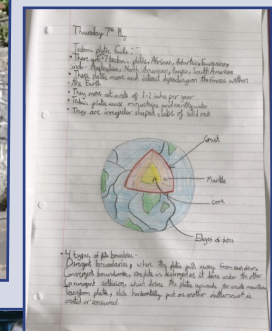 Thursday 7th May
Tectonic plates Facts:
• There are 7 tectonic plates, African, Antarctic, Eurasian,
Indo-Australian, North American, Pacific, South American
• These plates move and interact depending on the forces within
the Earth
• They move at a rate of 1-2 inches per year
• Tectonic plates cause mountains and earthquakes
• They are irregular shaped slabs of solid rock
Crust
Mantle
core
Edges of plates
4 types of plate boundaries -
Divergent boundaries, where the plates pull away from each other
Convergent boundaries, one plate is destroyed as it dives under the other
Convergent collision, which drives the plates upwards to create mountains
transform plates, slide horizontally past one another and no crust is
created or consumed.